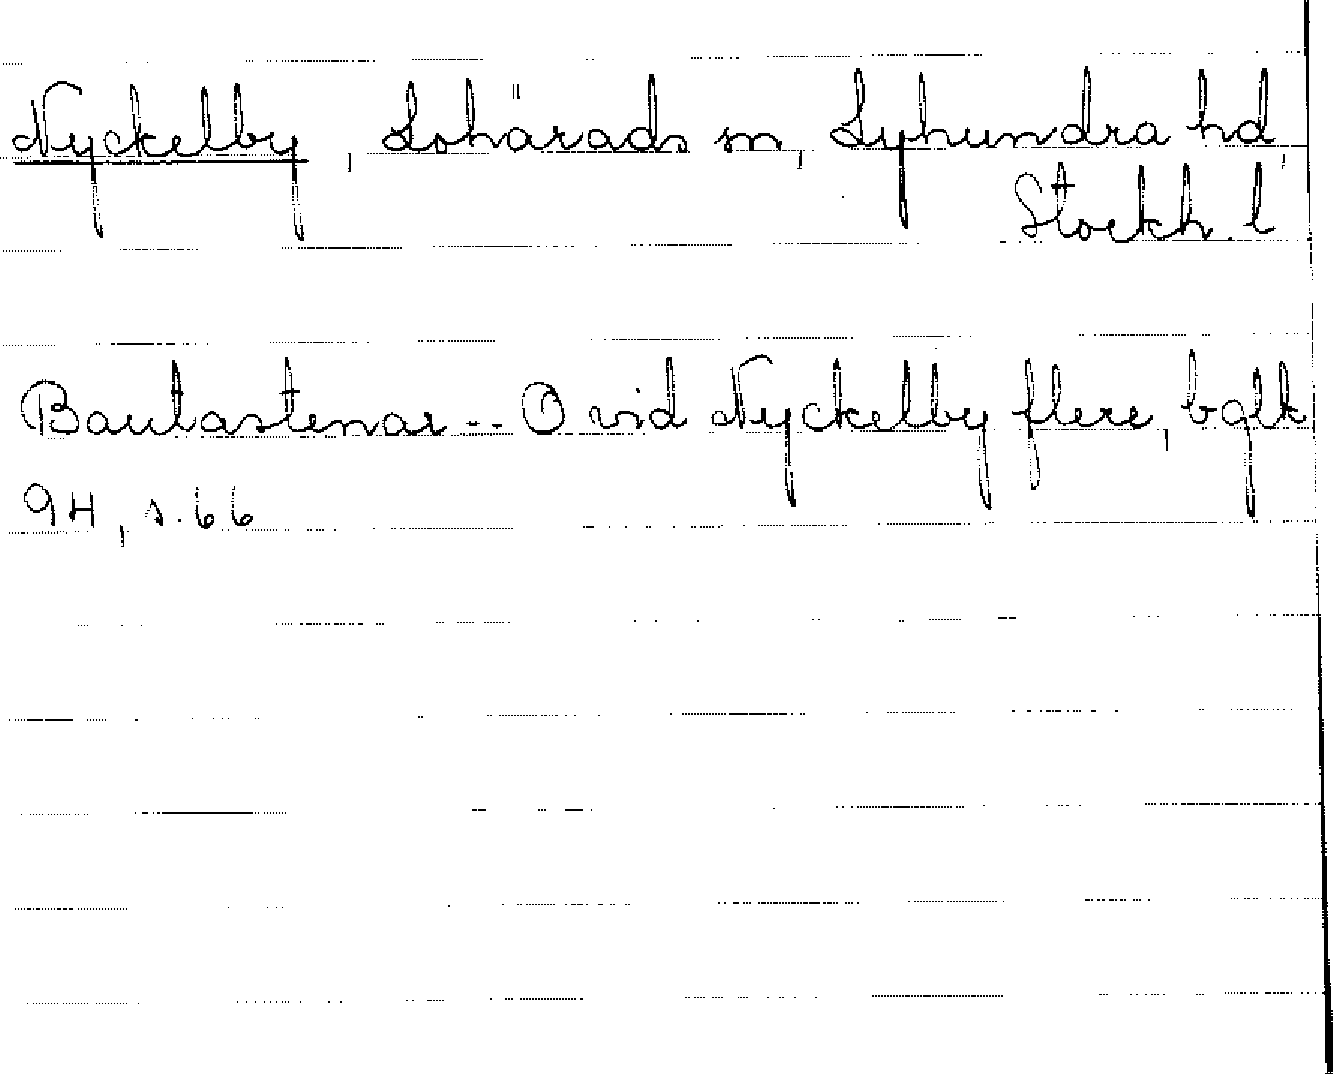 Nyckelby, Lohärads sn, Lyhundra hd,
Stockh. l
Bautastenar -- O vid Nyckelby flere, bglk
94, s. 66